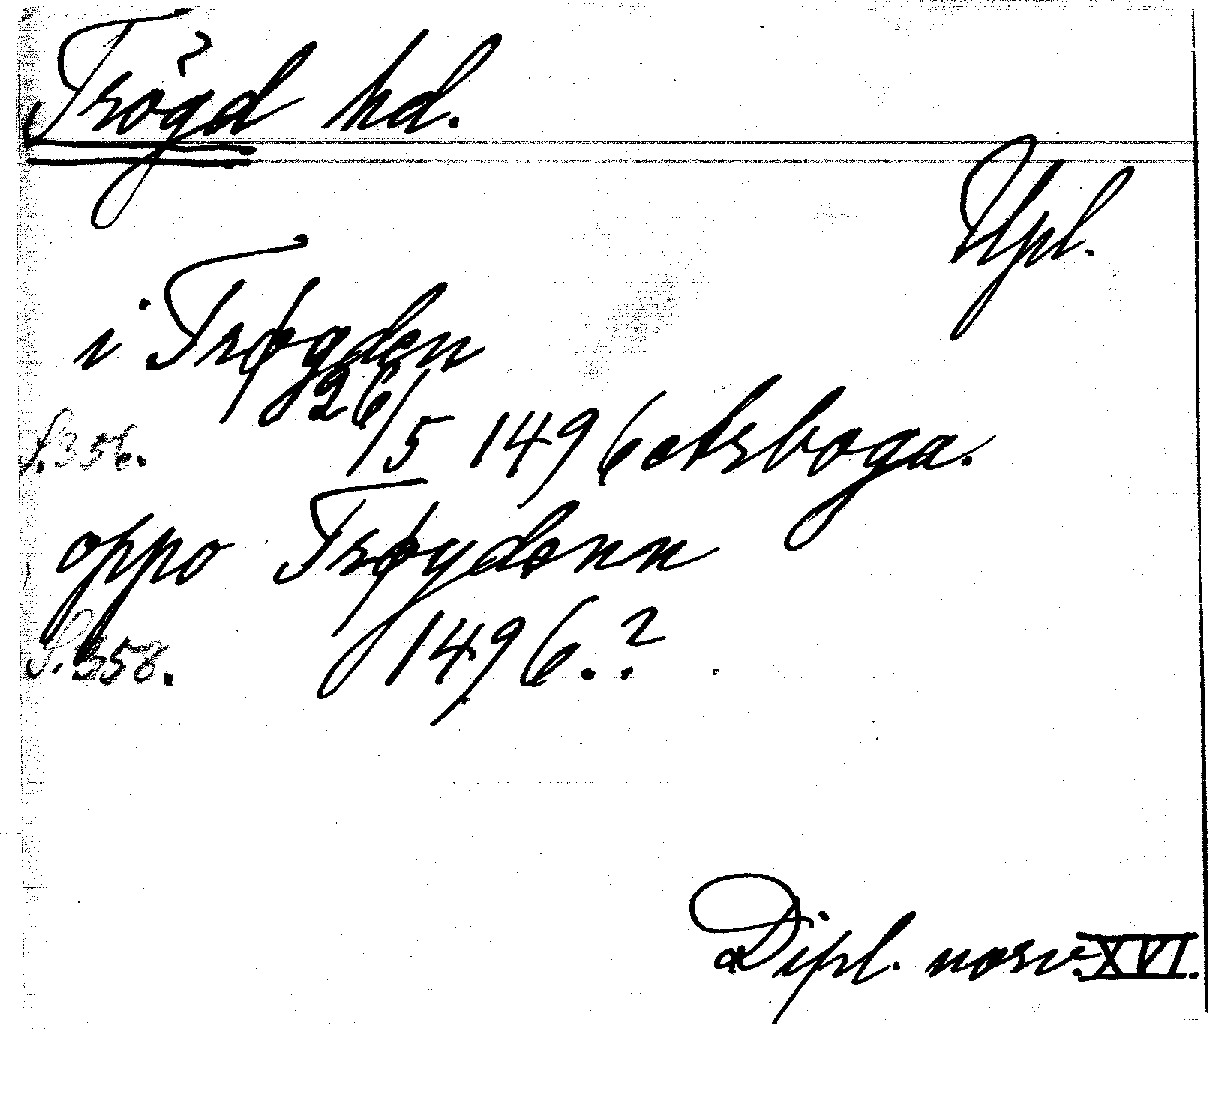 Trögd hd.
Upl.
i Trøgden
26/5 1496 Arboga.
s. 356.
oppo Trøgdenn
s. 358. 1496.?
Dipl. norv. XVI.